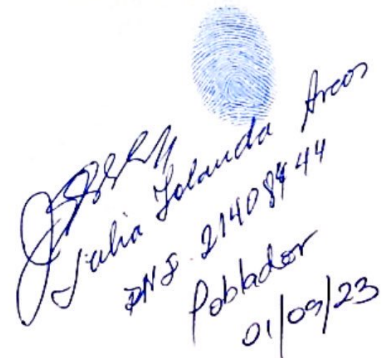 Julia Yolanda Arcos
DNI. 21408444
Poblador
01/09/23